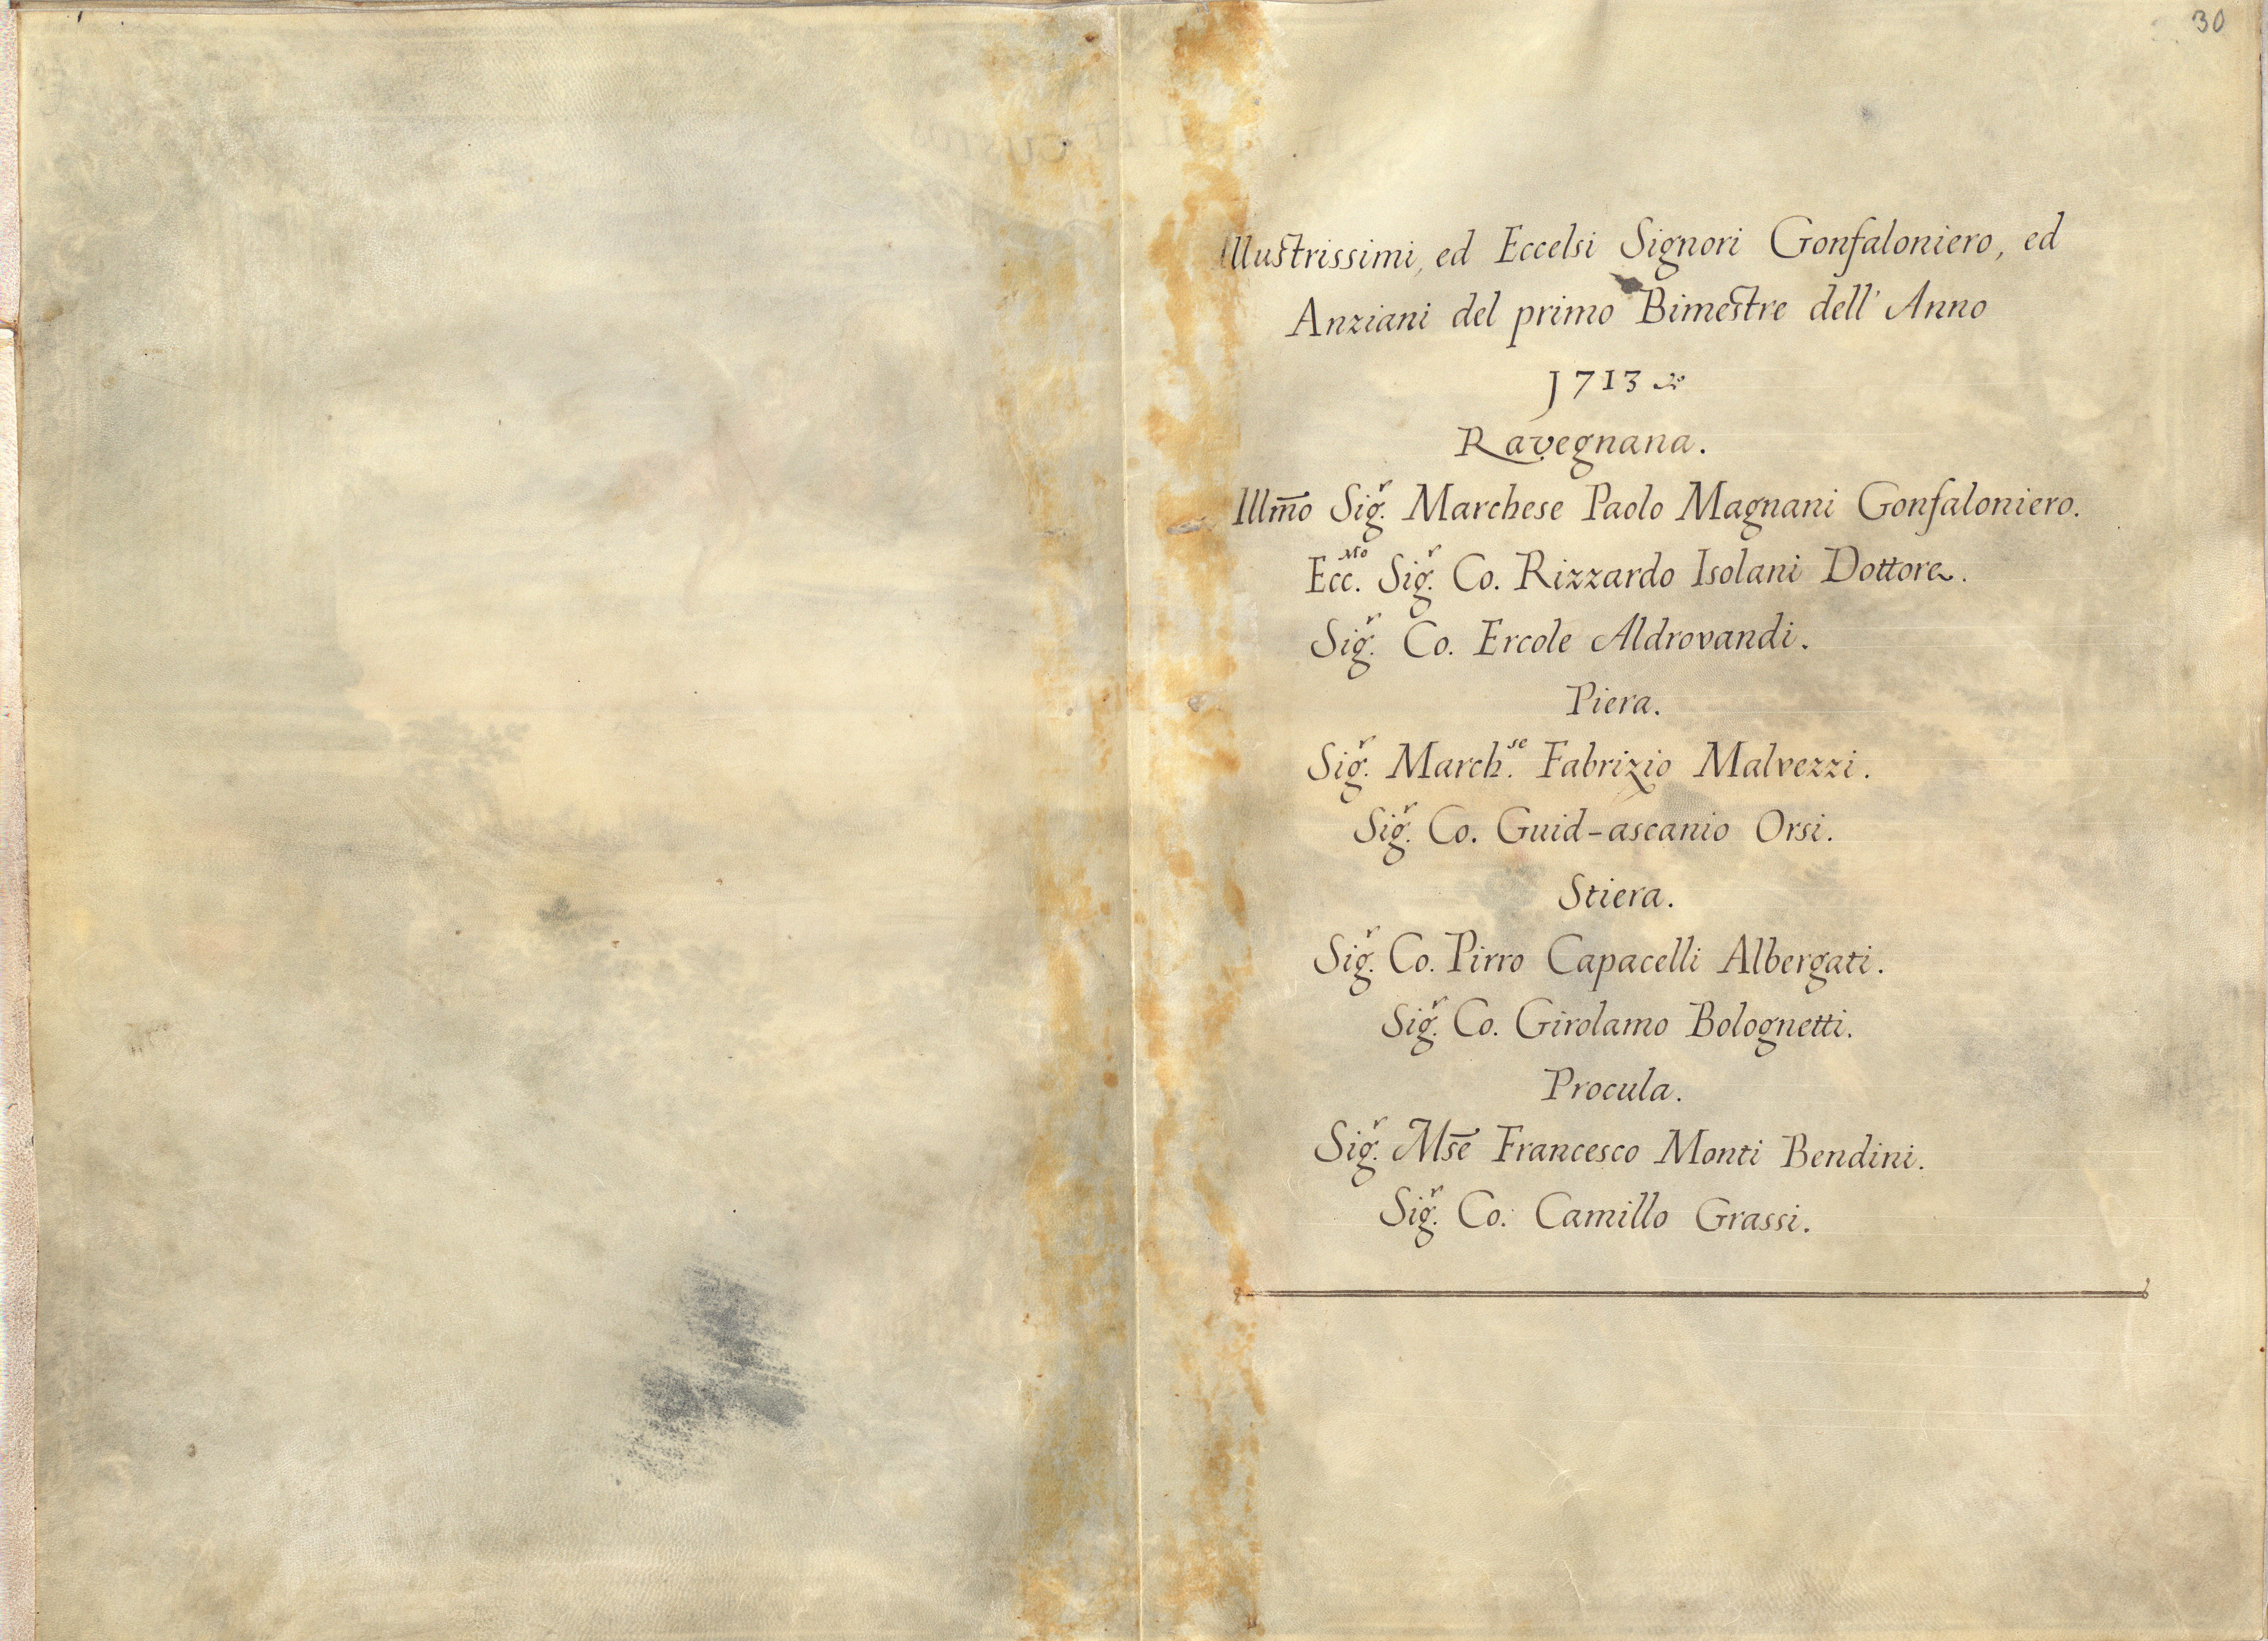 30
Illustrissimi, ed Eccelsi Signori Gonfaloniero, ed
Anziani del primo Bimestre dell' Anno
1713
Ravegnana.
Illm̄o Sig.r Marchese Paolo Magnani Gonfaloniero.
Ecc.mo Sig.r Co. Rizzardo Isolani Dottore.
Sig.r Co. Ercole Aldrovandi.
Piera.
Sig.r March.se Fabrizio Malvezzi.
Sig.r Co. Guid-ascanio Orsi.
Stiera.
Sig.r Co. Pirro Capacelli Albergati.
Sig.r Co. Girolamo Bolognetti.
Procula.
Sig.r Ms̄e Francesco Monti Bendini.
Sig.r Co. Camillo Grassi.